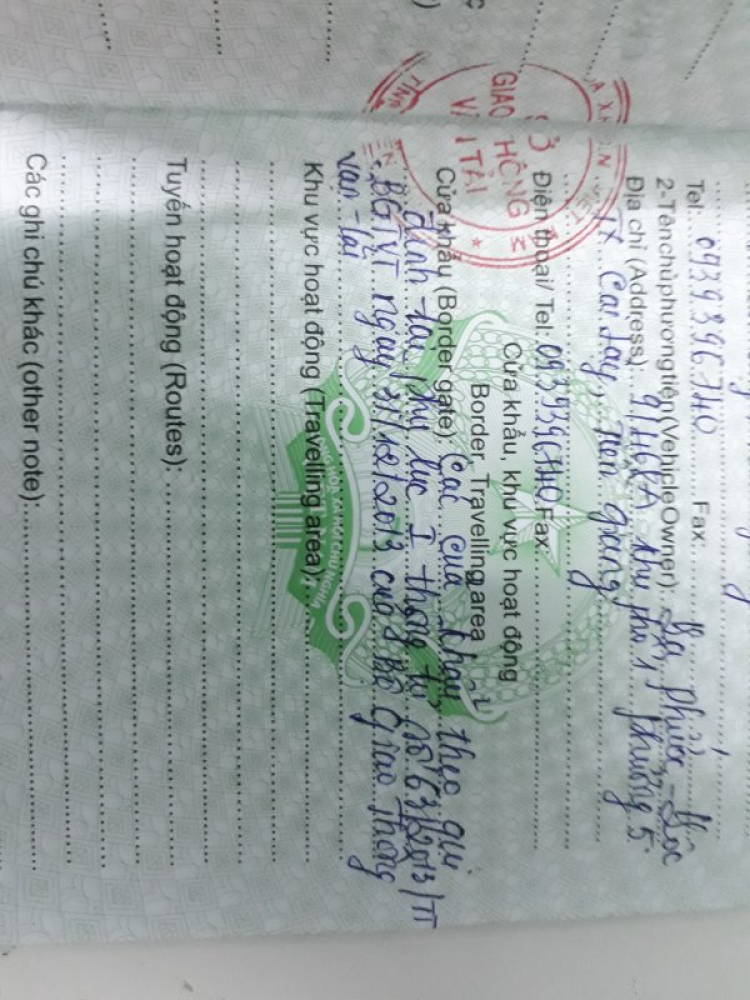 Tel: 0939396740 Fax:
2-Tênchủphươngtiện(VehicleOwner): Phước Lộc
Địa chỉ (Address): 9/46KA khu phố 1, phường 5
TX Cai Lậy, Tiền giang
Điện thoại/ Tel: 0939396740 Fax:
Cửa khẩu, khu vực hoạt động
Border, Travelling area
Cửa khẩu (Border gate): Các cửa khẩu theo qui
định tại phụ lục I thông tư số 63/2013/TT
-BGTVT ngày 31/12/2013 của Bộ Giao thông
vận tải
Khu vực hoạt động (Travelling area):
Tuyến hoạt động (Routes):
Các ghi chú khác (other note):
SỞ
GIAO THÔNG
VẬN TẢI
CỘNG HÒA XÃ HỘI CHỦ NGHĨA